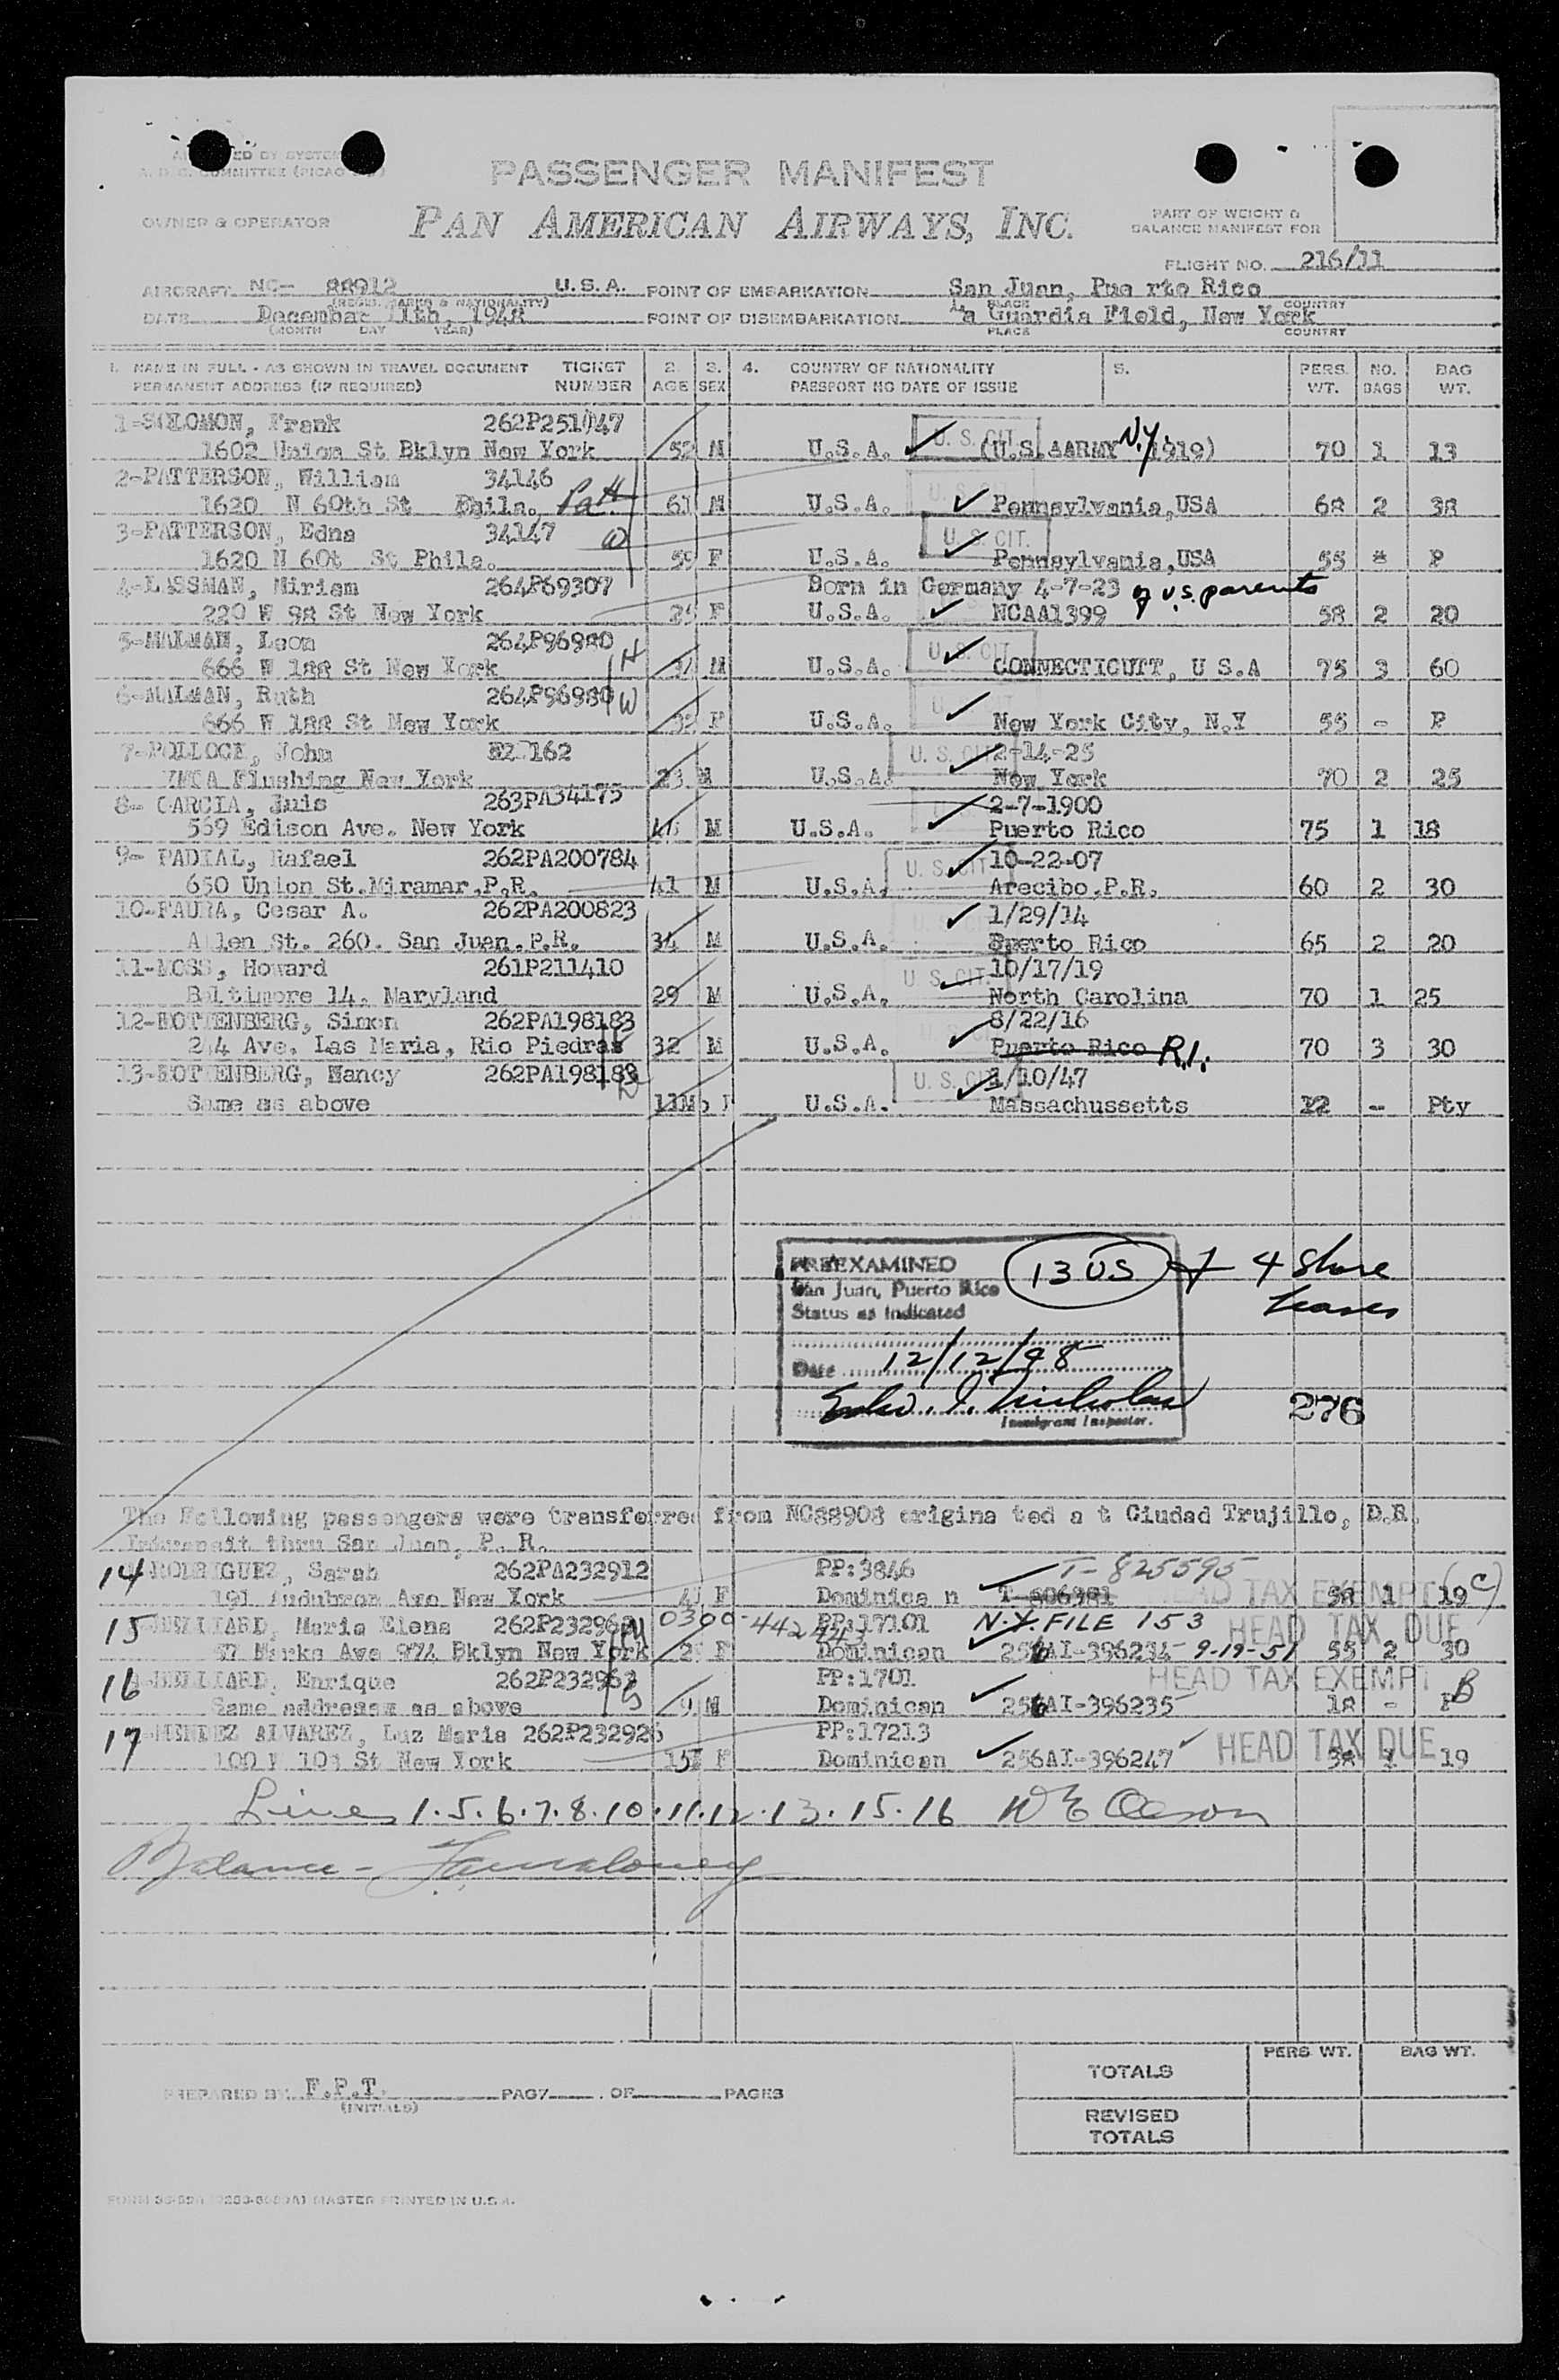 PASSENGER MANIFEST
OWNER & OPERATOR
PAN AMERICAN AIRWAYS, INC.
PART OF WEIGHT &
BALANCE MANIFEST FOR
FLIGHT NO. 216/11
AIRCRAFT NC- 88912 U.S.A. POINT OF EMBARKATION San Juan, Pue rto Rico
(REGIS. MARKS & NATIONALITY) PLACE COUNTRY
DATE December 11th, 1948 POINT OF DISEMBARKATION La Guardia Field, New York
(MONTH DAY YEAR) PLACE COUNTRY
1. NAME IN FULL - AS SHOWN IN TRAVEL DOCUMENT TICKET 2. 3. 4. COUNTRY OF NATIONALITY 5. PERS. NO. BAG
PERMANENT ADDRESS (IF REQUIRED) NUMBER AGE SEX PASSPORT NO DATE OF ISSUE WT. BAGS WT.
1-SOLOMON, Frank 262P251047 U. S. CIT.
1602 Union St Bklyn New York 52 M U.S.A. (U.S. ARMY N.Y. 1919) 70 1 13
2-PATTERSON, William 34146 U. S. CIT.
1620 N 60th St Phila. Pa H 61 M U.S.A. Pennsylvania,USA 68 2 38
3-PATTERSON, Edna 34147 W U. S. CIT.
1620 N 60t St Phila. 59 F U.S.A. Pennsylvania,USA 55 - P
4-LASSMAN, Miriam 264P69307 Born in Germany 4-7-23 of U.S. parents
220 W 98 St New York 25 F U.S.A. NCAA1399 58 2 20
5-MALMAN, Leon 264P96980 U. S. CIT
666 W 188 St New York H M U.S.A. CONNECTICUTT, U S.A 75 3 60
6-MALMAN, Ruth 264P96980 W
666 W 188 St New York F U.S.A. New York City, N.Y 55 - P
7-POLLOCK, John 162 U. S. CIT 2-14-25
YMCA Flushing New York 23 M U.S.A. New York 70 2 25
8- GARCIA, Juis 263PA34175 2-7-1900
569 Edison Ave. New York M U.S.A. Puerto Rico 75 1 18
9- PADIAL, Rafael 262PA200784 U. S. CIT 10-22-07
650 Union St.Miramar,P.R. 41 M U.S.A. Arecibo,P.R. 60 2 30
10-FAURA, Cesar A. 262PA200823 1/29/14
Allen St. 260. San Juan.P.R. 34 M U.S.A. Puerto Rico 65 2 20
11-MOSS, Howard 261P211410 U. S. CIT. 10/17/19
Baltimore 14. Maryland 29 M U.S.A. North Carolina 70 1 25
12-ROTTENBERG, Simon 262PA198183 8/22/16
Ave. Las Maria, Rio Piedras 32 M U.S.A. Puerto Rico R.I. 70 3 30
13-ROTTENBERG, Nancy 262PA198183 D U. S. CIT 1/10/47
Same as above 11Mo F U.S.A. Massachussetts 22 - Pty
PREEXAMINED 13 US + 4 Shore
San Juan, Puerto Rico Leaves
Status as indicated
Date 12/12/48
Immigrant Inspector. 276
The Following passengers were transferred from NC88908 origina ted a t Ciudad Trujillo, D.R.
Intransit thru San Juan, P. R.
14 RODRIGUEZ, Sarah 262PA232912 PP:3846 T- 825595
191 Audubron Ave New York F Dominica n T- 606981 HEAD TAX EXEMPT 58 1 19 (C)
15 JUILLIARD, Maria Elena 262P232962 M 0300-442443 PP:17101 N.Y. FILE 153 HEAD TAX DUE
Marks Ave 974 Bklyn New York F Dominican 256AI-396234 9-19-51 55 2 30
16 JUILLIARD, Enrique 262P232963 S PP:1701 HEAD TAX EXEMPT B
Same addresss as above 9 M Dominican 256AI-396235 18 - P
17 MENDEZ ALVAREZ, Luz Maria 262P232926 PP:17213 HEAD TAX DUE
100 W 108 St New York 15 F Dominican 256AI-396247 58 1 19
Lines 1.5.6.7.8.10.11.12.13.15.16 W E Olson
Balance -
PREPARED BY F.P.T. PAGE OF PAGES
(INITIALS)
PERS WT. BAG WT.
TOTALS
REVISED
TOTALS
MASTER PRINTED IN U.S.A.